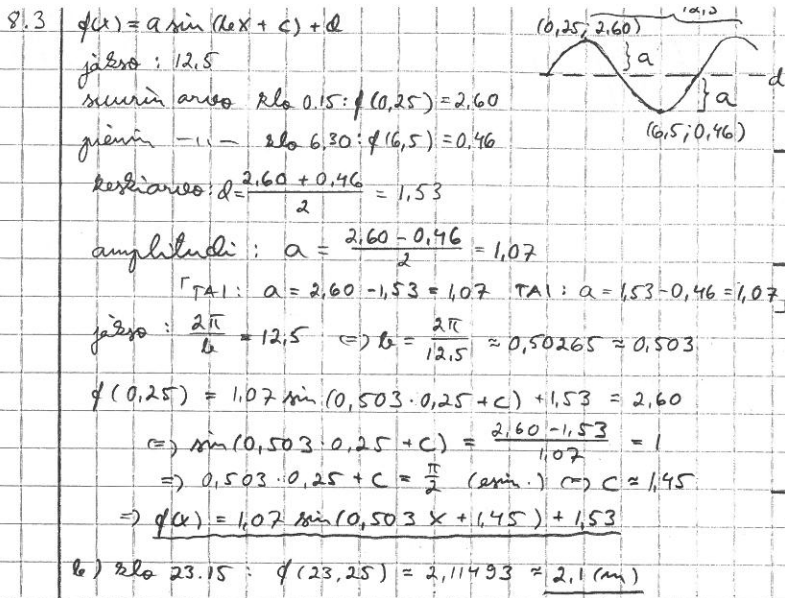 8.3 f(x) = a sin (bx + c) + d
12,5
(0,25; 2,60)
jakso : 12,5
a
d
suurin arvo klo 0.15: f(0,25) = 2,60
a
(6,5; 0,46)
pienin -"- klo 6.30: f(6,5) = 0,46
keskiarvo: d = \frac{2,60 + 0,46}{2} = 1,53
amplitudi : a = \frac{2,60 - 0,46}{2} = 1,07
⌈TAI: a = 2,60 - 1,53 = 1,07 TAI: a = 1,53 - 0,46 = 1,07⌋
jakso : \frac{2π}{b} = 12,5 <=> b = \frac{2π}{12,5} ≈ 0,50265 ≈ 0,503
f(0,25) = 1,07 sin (0,503 · 0,25 + c) + 1,53 = 2,60
<=> sin (0,503 · 0,25 + c) = \frac{2,60 - 1,53}{1,07} = 1
=> 0,503 · 0,25 + c = \frac{π}{2} (esim.) <=> c ≈ 1,45
=> f(x) = 1,07 sin (0,503 x + 1,45) + 1,53
b) klo 23.15 : f(23,25) = 2,11493 ≈ 2,1 (m)